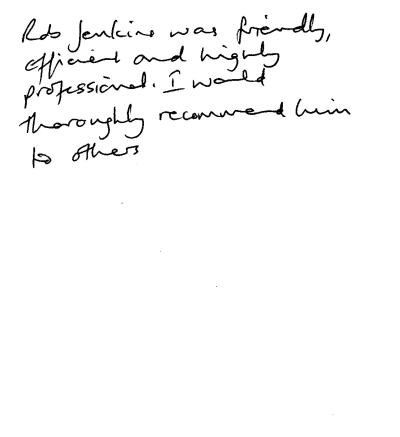 Rob Jenkins was friendly,
efficient and highly
professional. I would
thoroughly recommend him
to others